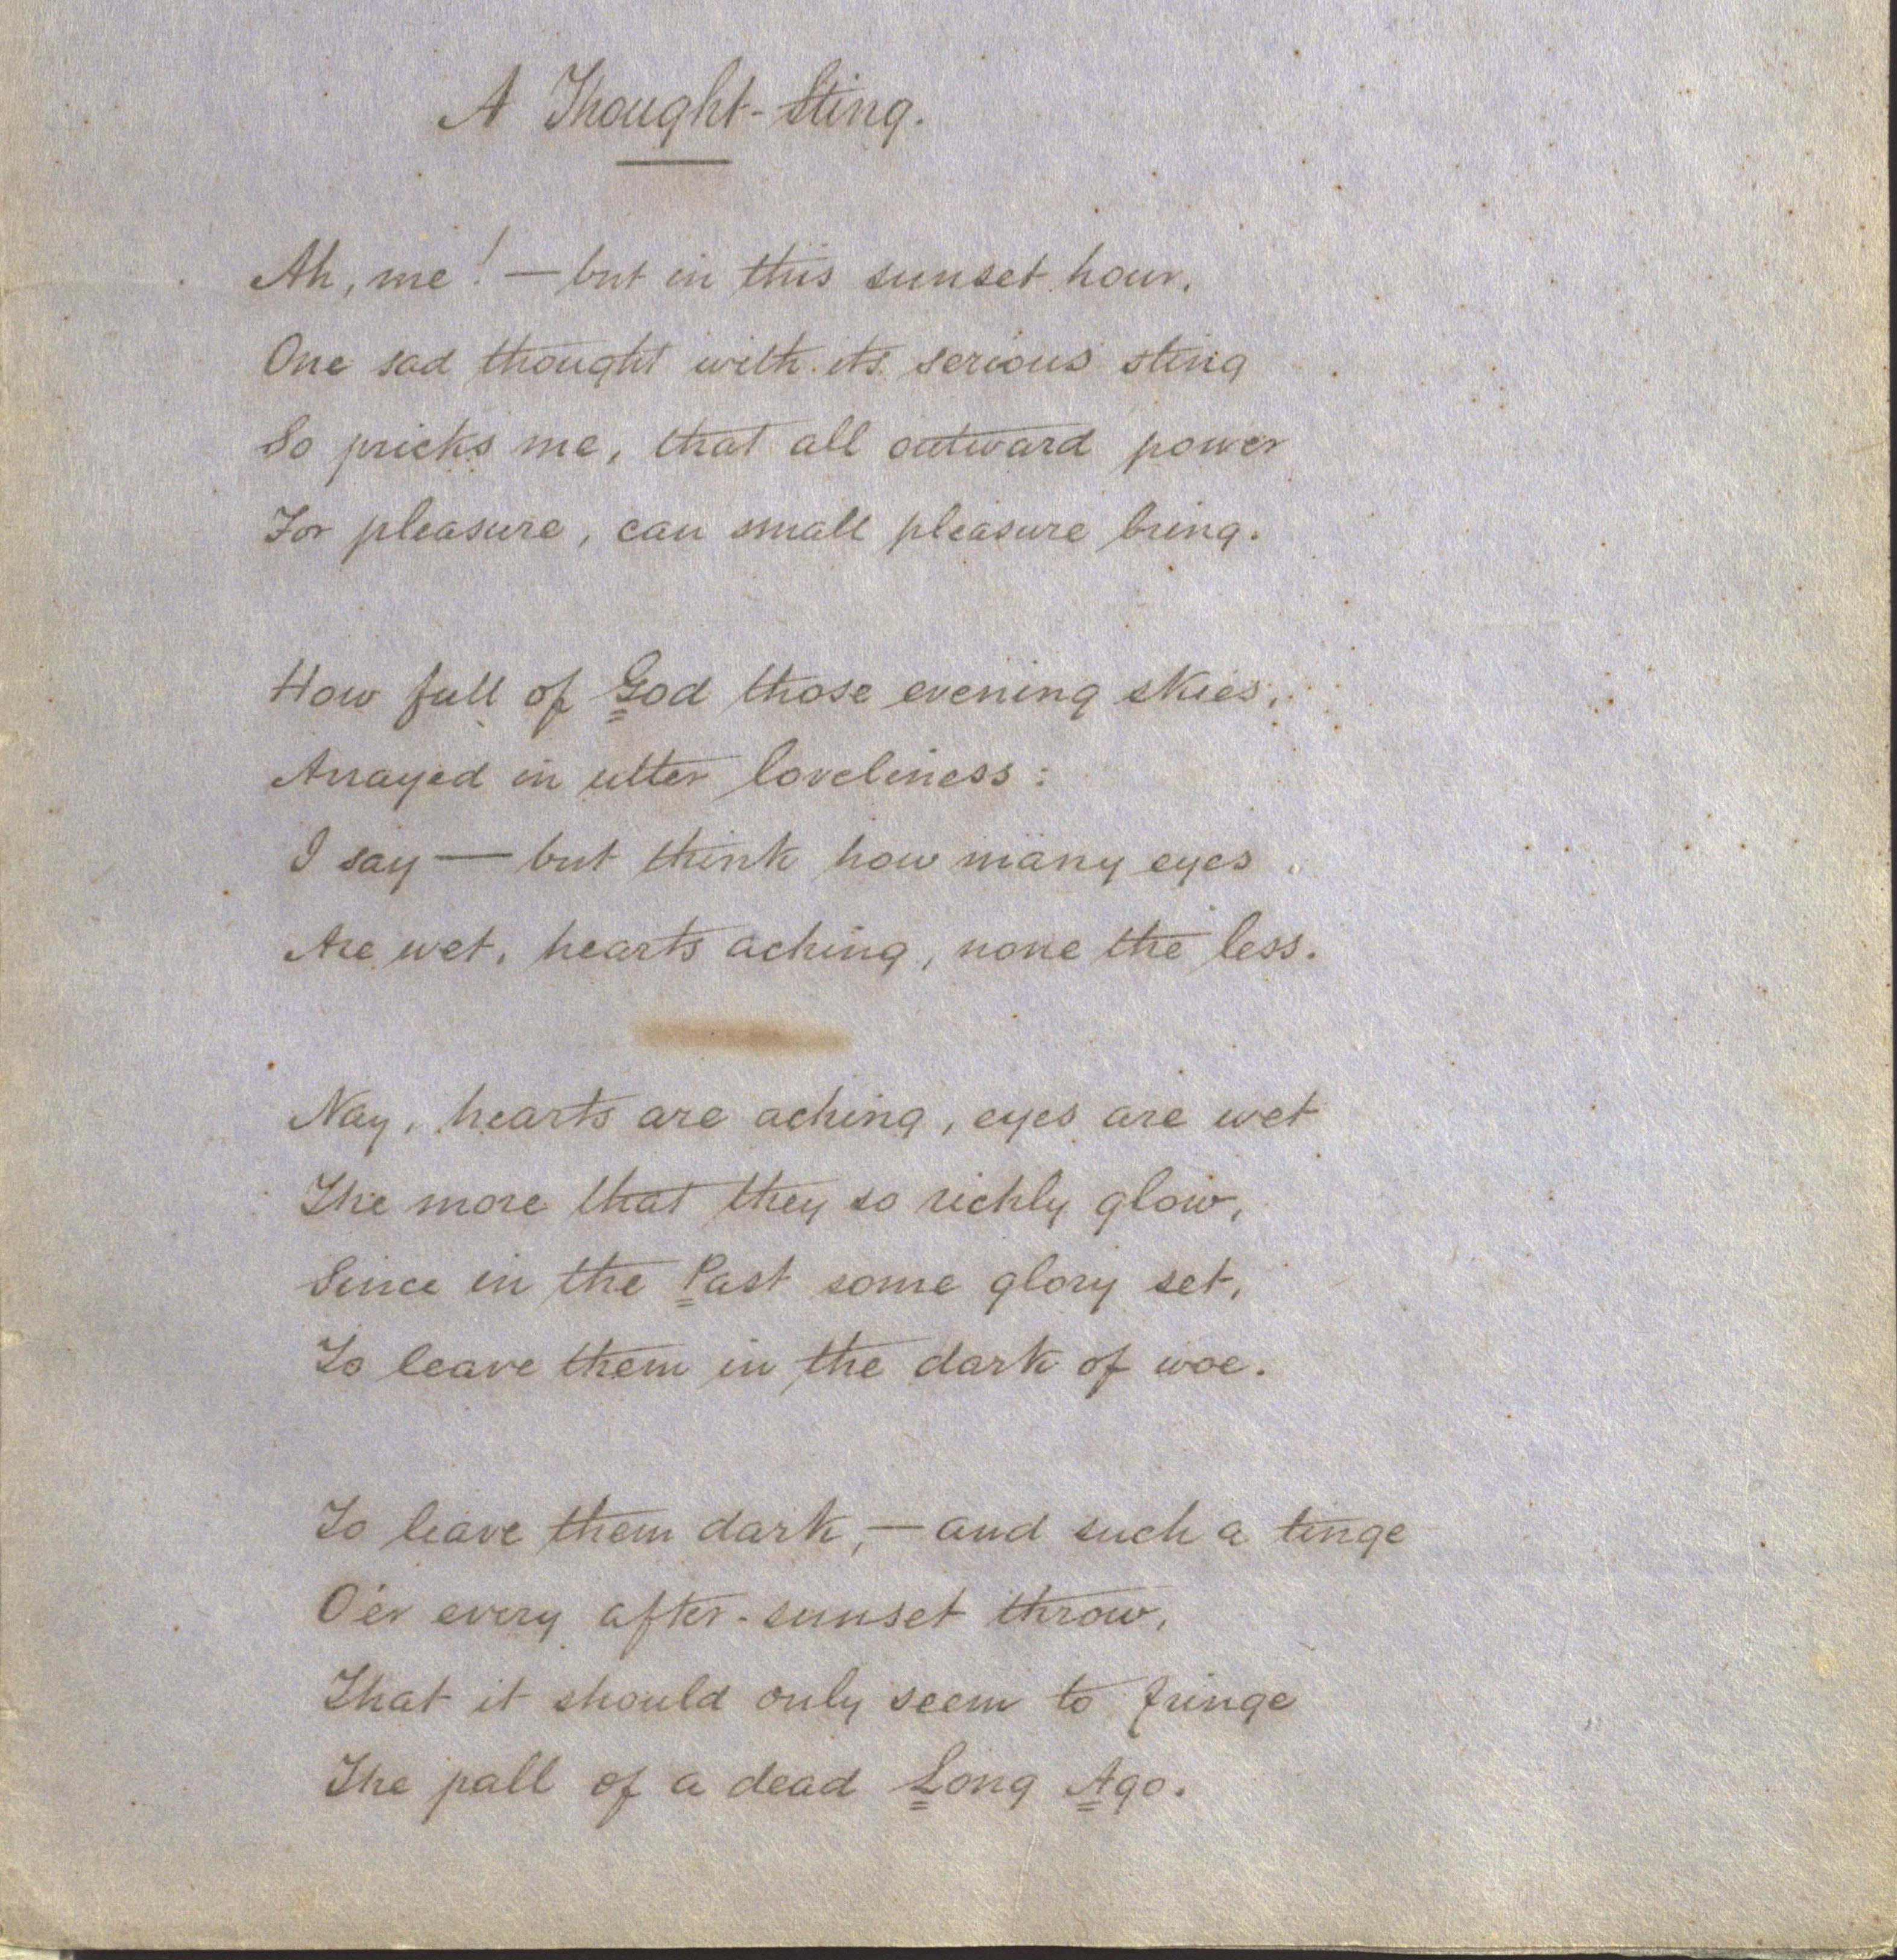 A Thought-Sting.
Ah, me! — but in this sunset hour,
One sad thought with its serious sting
So pricks me, that all outward power
For pleasure, can small pleasure bring.
How full of God those evening skies,
Arrayed in utter loveliness:
I say — but think how many eyes
Are wet, hearts aching, none the less.
Nay, hearts are aching, eyes are wet
The more that they so richly glow,
Since in the Past some glory set,
To leave them in the dark of woe.
To leave them dark, — and such a tinge
O'er every after-sunset throw,
That it should only seem to fringe
The pall of a dead Long Ago.